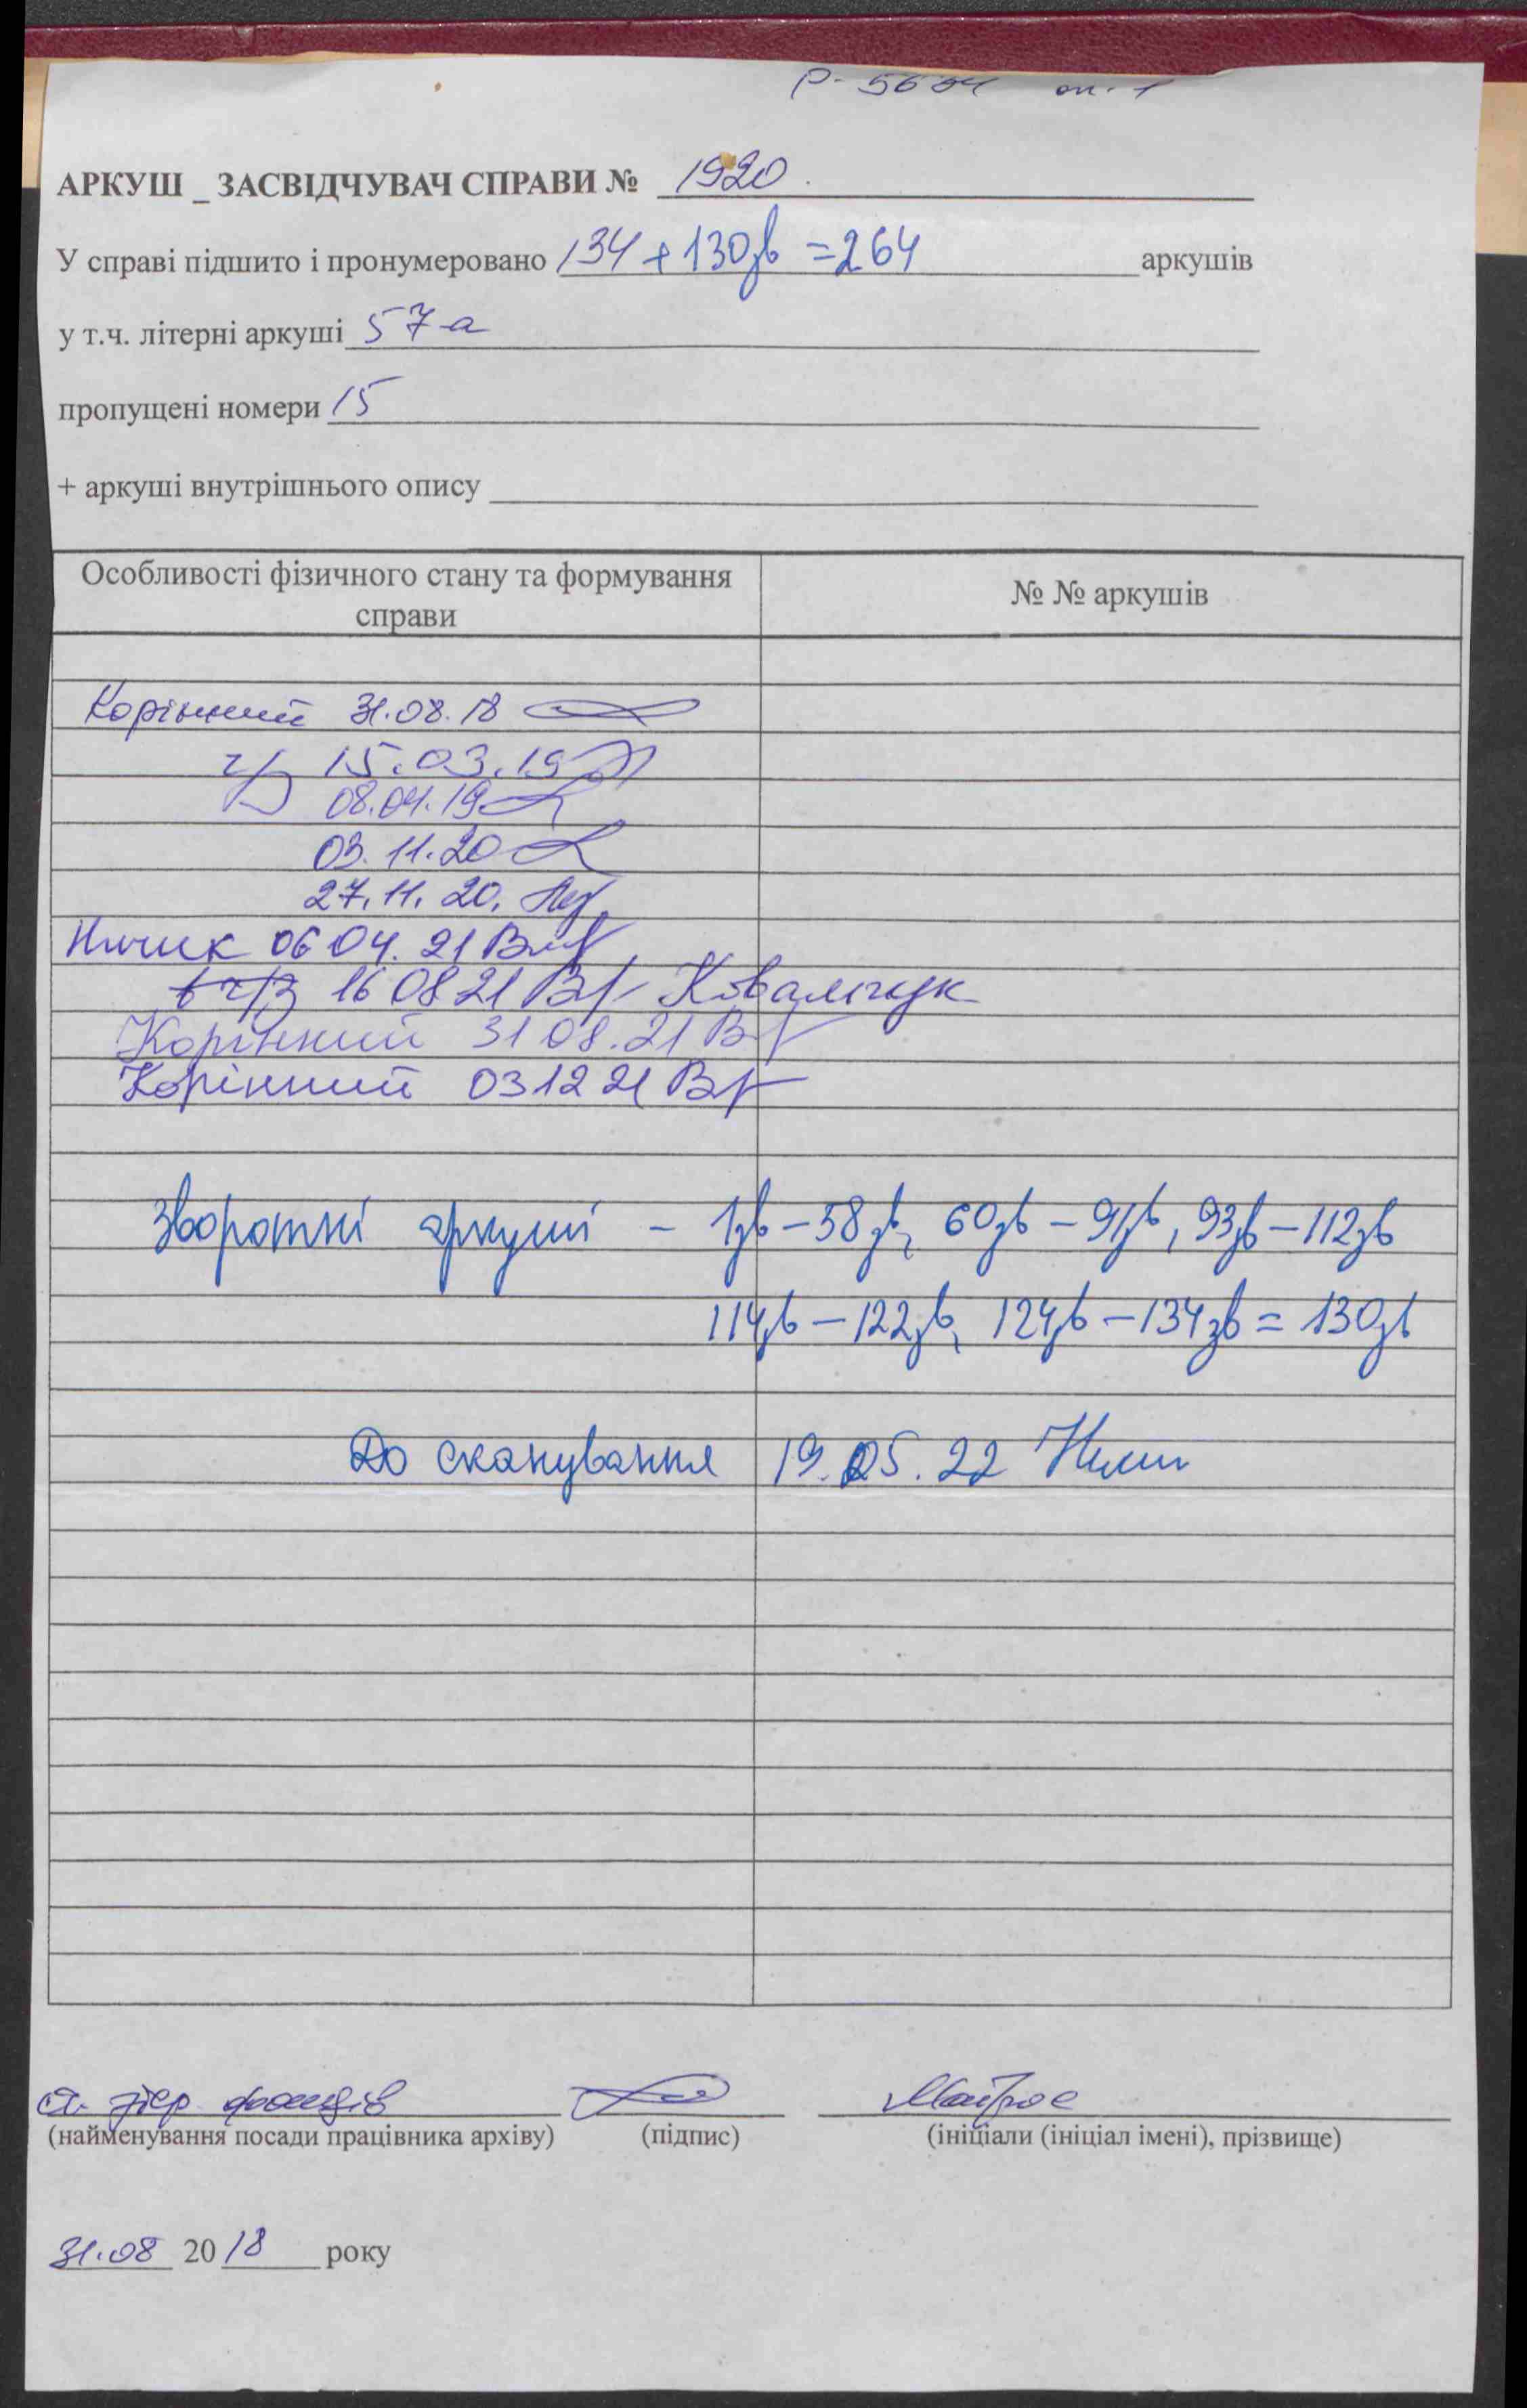 Р-5604 оп. 1
АРКУШ _ ЗАСВІДЧУВАЧ СПРАВИ № 1920
У справі підшито і пронумеровано 134 + 130зв = 264 аркушів
у т.ч. літерні аркуші 57-а
пропущені номери 15
+ аркуші внутрішнього опису
Особливості фізичного стану та формування справи
№ № аркушів
Корінний 31.08.18
ч/з 15.03.19
08.04.19
03.11.20
27.11.20.
06 04. 21
ч/з 16 08 21 Ковальчук
Корінний 31 08.21
Корінний 03 12 21
Зворотні аркуші – 1зв – 58зв, 60зв – 91зв, 93зв – 112зв
114зв – 122зв, 124зв – 134зв = 130зв
До сканування 19.05.22
ст. збер. фондів
(найменування посади працівника архіву) (підпис) (ініціали (ініціал імені), прізвище)
31.08 2018 року